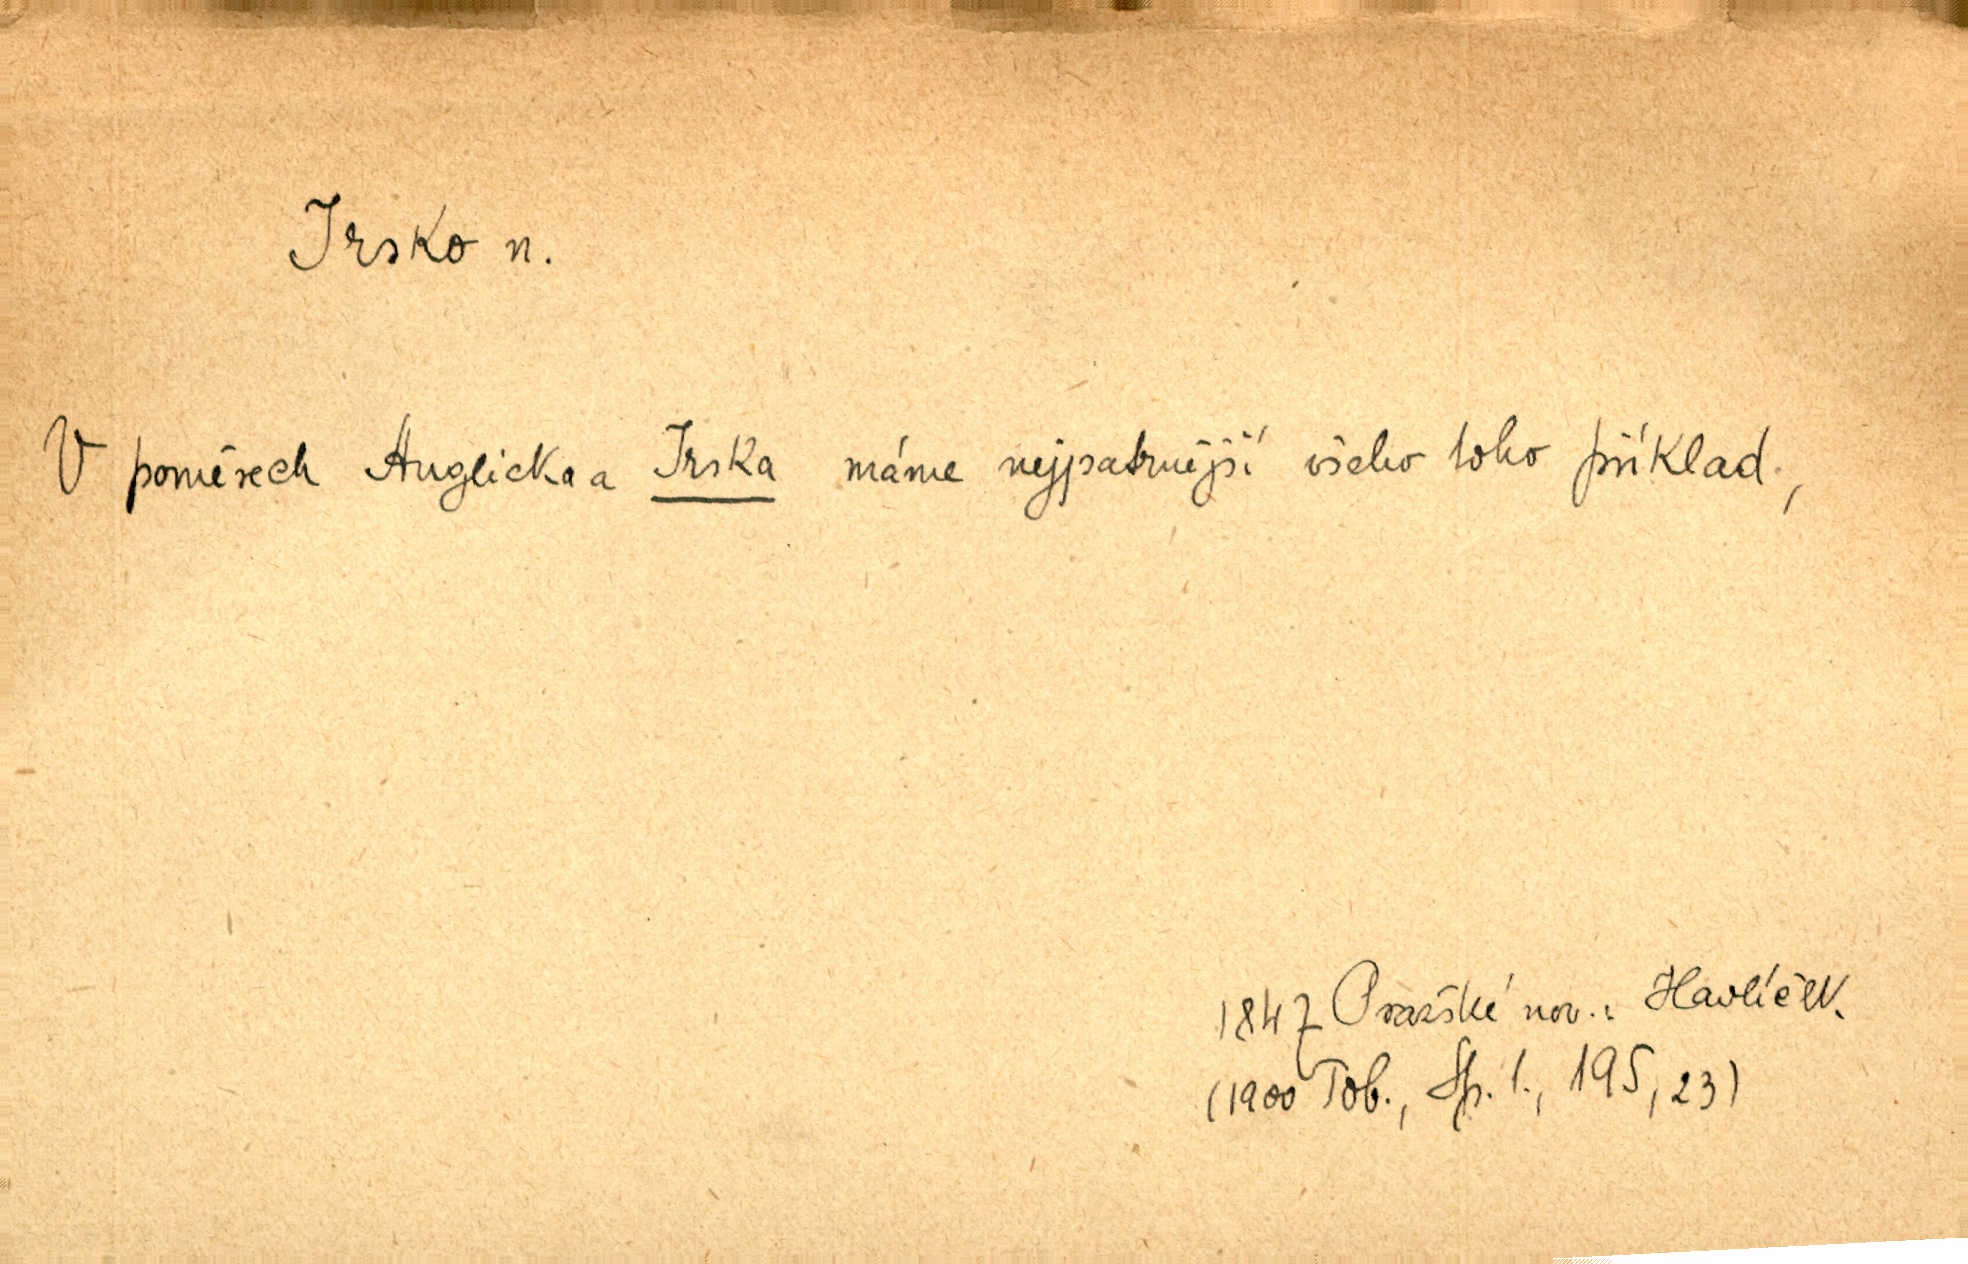 Irsko n.
V poměrech Anglicka a Irska máme nejpatrnější všeho toho příklad.,
1847 Pražské nov.: Havlíček.
(1900 Tob., Sp. 1., 195, 23)